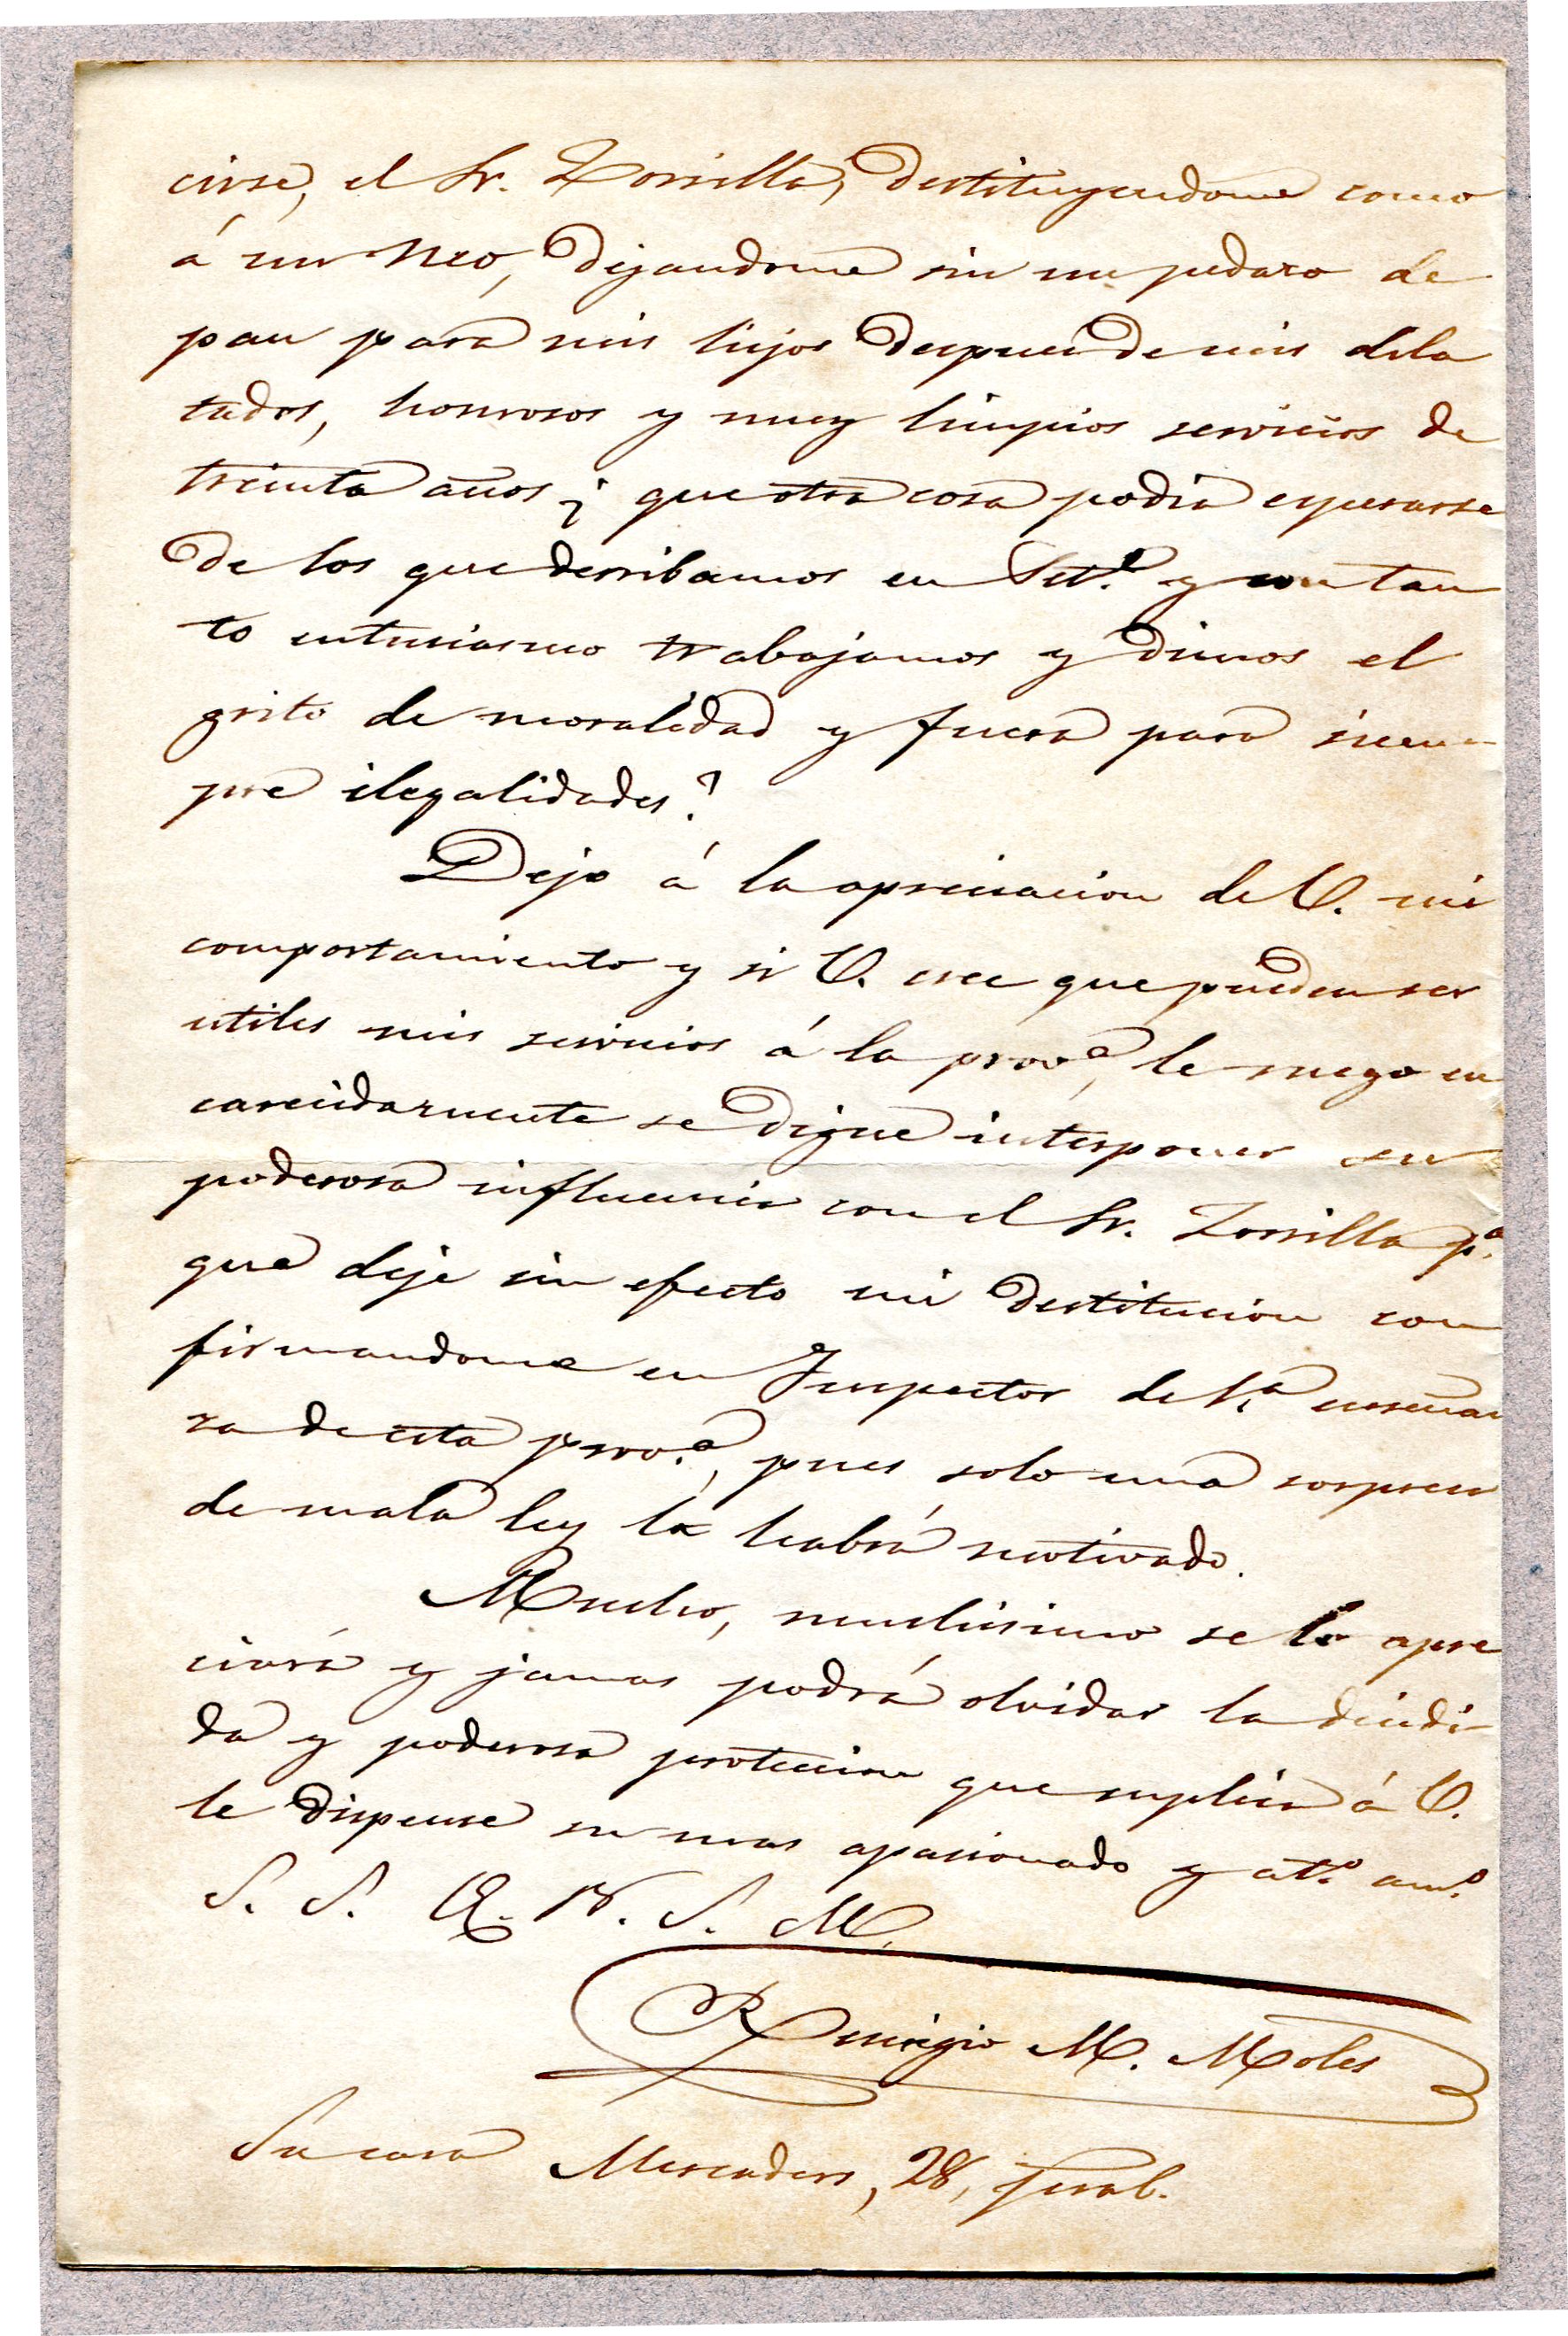 cirse, el Sr. Zorrilla, destituyendome como
á un Neo, dejandome sin un pedazo de
pan para mis hijos despues de mis dila
tados, honrosos y muy limpios servicios de
treinta años ¿ que otra cosa podia esperarse
de los que derribamos en Set.e y con tan
to entusiasmo trabajamos y dimos el
grito de moralidad y fuera para siem-
pre ilegalidades?
Dejo á la apreciacion de V. mi
comportamiento y si V. cree que pueden ser
utiles mis servicios á la prov.a, le ruego en
carecidamente se digne interponer su
poderosa influencia con el Sr. Zorrilla p.a
que deje sin efecto mi destitucion con
firmandome en Inspector de 1.a enseñan
za de esta prov.a, pues solo una sorpresa
de mala ley la habrá motivado.
Mucho, muchisimo se lo apre
ciará y jamas podrá olvidar la
da y poderosa proteccion que suplica á V.
le dispense su mas apasionado y att.o am.o
S. S. Q. B. S. M.
Remigio M. Moles
Su casa Mercaders, 28, pral.